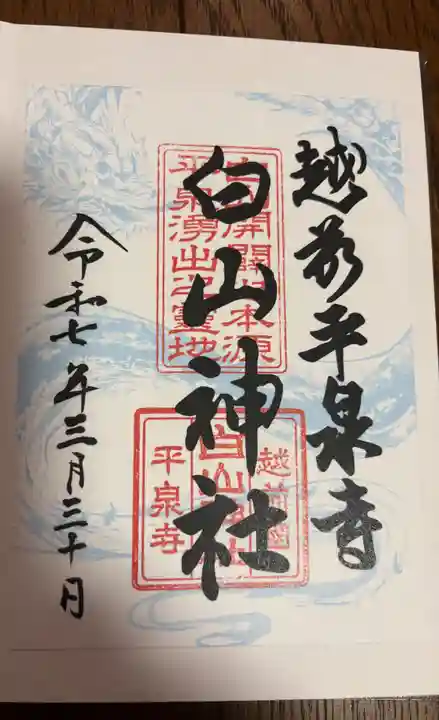 越前平泉寺
白山神社
令和七年三月三十日
白山開闢之本源
平泉湧出之霊地
越前國
白山神社
平泉寺